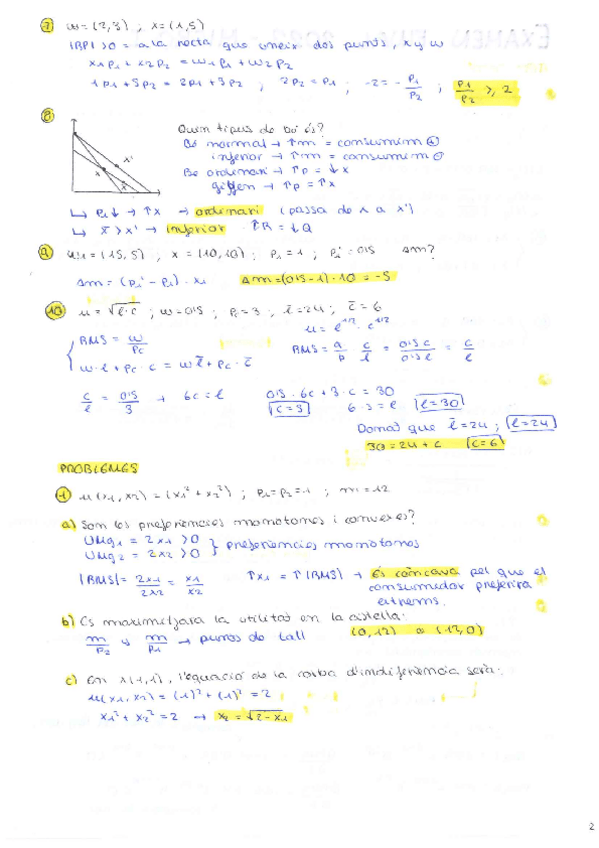 ⑦ w = (2,3) , x = (1,5)
|BP| >0 = a la recta que uneix dos punts, x y w
x1p1 + x2p2 = w1p1 + w2p2
1p1 + 5p2 = 2p1 + 3p2 ; 2p2 = p1 ; -2 = - p1/p2 ; p1/p2 ≥ 2
⑧
Quin tipus de bé és?
Bé normal → ↑m = consumim ⊕
inferior → ↑m = consumim ⊖
Bé ordinari → ↑p = ↓x
giffen → ↑p = ↑x
↳ p1↓ → ↑x → ordinari (passa de x a x')
↳ x > x' → inferior ↑R = ↓Q
⑨ w1 = (15,5) ; x = (10,10) ; p1 = 1 ; p1' = 0'5 Δm?
Δm = (p1' - p1) · x1 Δm = (0'5 - 1) · 10 = -5
⑩ u = √l·c ; w = 0'5 ; pc = 3 ; l̄ = 24 ; c̄ = 6
u = l^1/2 · c^1/2
RMS = w/pc
w·l + pc·c = w l̄ + pc · c̄
RMS = a/b c/l = 0'5 c/0'5 l = c/l
c/l = 0'5/3 → 6c = l 0'5 · 6c + 3·c = 30
c = 5 6·5 = l l = 30
Donat que l̄ = 24 ; l = 24
30 = 24 + c c = 6
PROBLEMES
① u(x1, x2) = (x1² + x2²) ; p1 = p2 = 1 ; m = 12
a) Són les preferències monótones i convexes?
UMg1 = 2x1 > 0
UMg2 = 2x2 > 0 } preferències monótones
|RMS| = 2x1/2x2 = x1/x2 ↑x1 = ↑|RMS| → És còncava pel que el
consumidor preferira
extrems.
b) Es maximitzara la utilitat en la cistella:
m/p2 y m/p1 → punts de tall (0,12) o (12,0)
c) En x(1,1), l'equació de la corba d'indiferència serà:
u(x1, x2) = (1)² + (1)² = 2
x1² + x2² = 2 → x2 = √2-x1
2